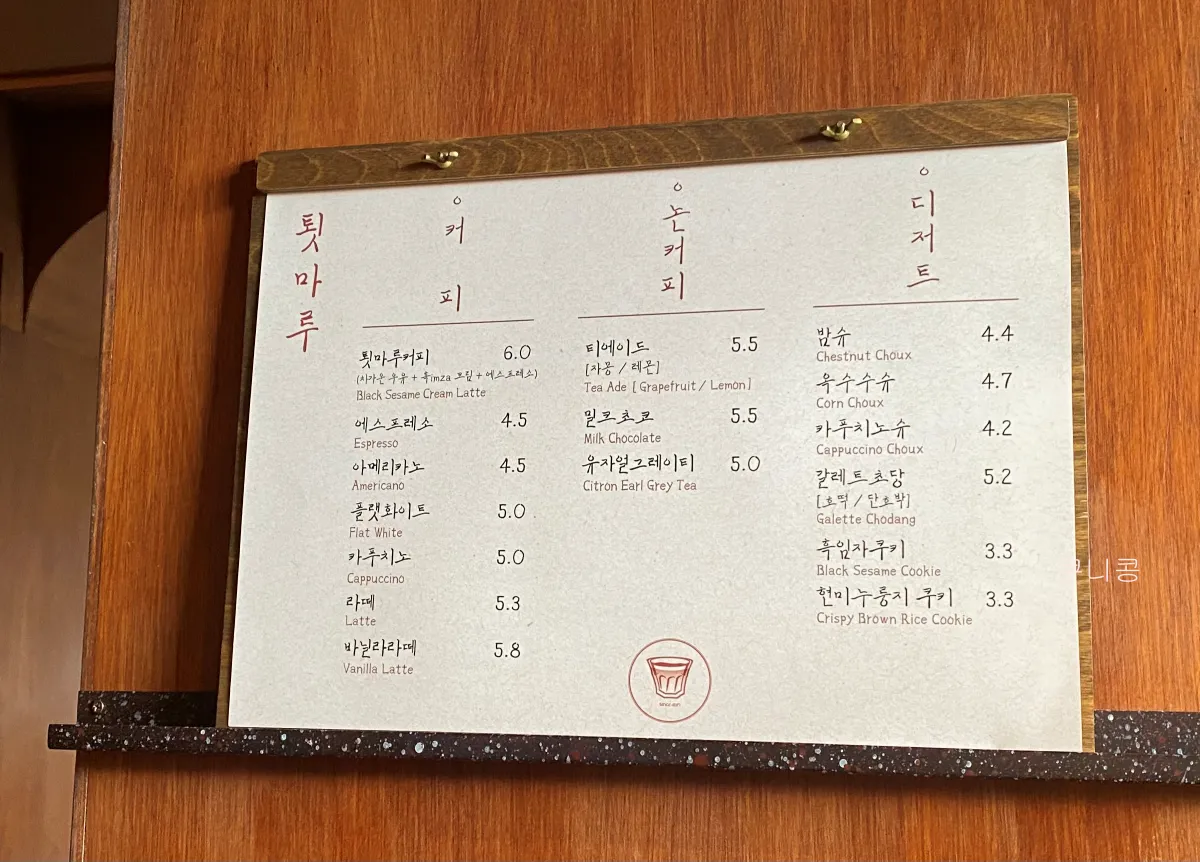 툇마루
커피
툇마루커피 6.0
(차가운 우유 + 흑imza 크림 + 에스프레소)
Black Sesame Cream Latte
에스프레소 4.5
Espresso
아메리카노 4.5
Americano
플랫화이트 5.0
Flat White
카푸치노 5.0
Cappuccino
라떼 5.3
Latte
바닐라라떼 5.8
Vanilla Latte
논커피
티에이드 5.5
[자몽 / 레몬]
Tea Ade [ Grapefruit / Lemon ]
밀크초코 5.5
Milk Chocolate
유자얼그레이티 5.0
Citron Earl Grey Tea
디저트
밤슈 4.4
Chestnut Choux
옥수수슈 4.7
Corn Choux
카푸치노슈 4.2
Cappuccino Choux
갈레트초당 5.2
[호떡 / 단호박]
Galette Chodang
흑임자쿠키 3.3
Black Sesame Cookie
현미누룽지 쿠키 3.3
Crispy Brown Rice Cookie